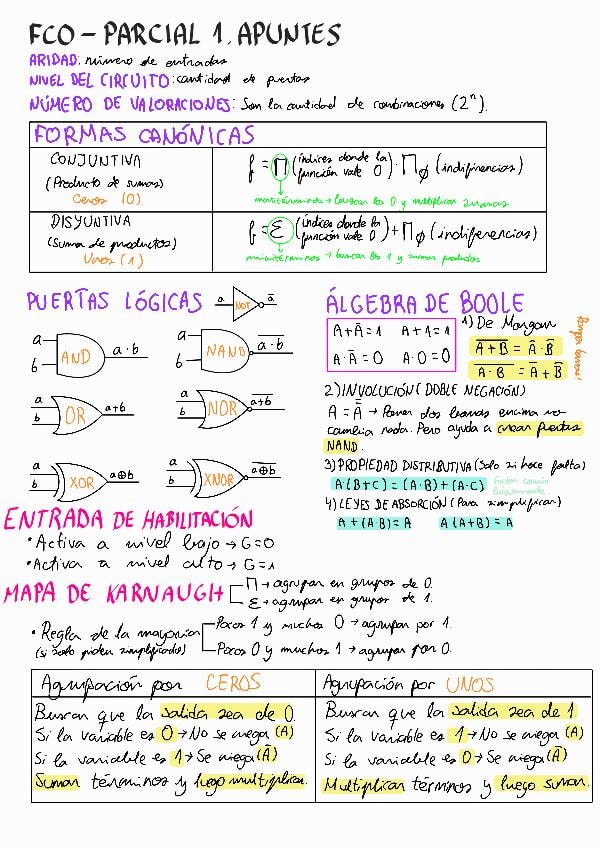 FCO – PARCIAL 1. APUNTES
ARIDAD: número de entradas
NIVEL DEL CIRCUITO: cantidad de puertas
NÚMERO DE VALORACIONES: Son la cantidad de combinaciones (2ⁿ).
FORMAS CANÓNICAS
CONJUNTIVA
(Producto de sumas)
Ceros (0)
f = Π (índices donde la función vale 0) · Πϕ (indiferencias)
maxitérminos → buscar los 0 y multiplicar sumas
DISYUNTIVA
(Suma de productos)
Unos (1)
f = Σ (índices donde la función vale 0) + Πϕ (indiferencias)
minitérminos → buscar los 1 y sumar productos
PUERTAS LÓGICAS
a NOT a̅
a b AND a·b
a b NAND a̅·̅b̅
a b OR a+b
a b NOR a̅+̅b̅
a b XOR a⊕b
a b XNOR a̅⊕̅b̅
ÁLGEBRA DE BOOLE
A+A̅=1 A+1=1
A·A̅=0 A·0=0
1) De Morgan
A̅+̅B̅ = A̅·B̅
A̅·̅B̅ = A̅+B̅
Romper barras!
2) INVOLUCIÓN (DOBLE NEGACIÓN)
A = A̿ → Poner dos barras encima no
cambia nada. Pero ayuda a crear puertas
NAND.
3) PROPIEDAD DISTRIBUTIVA (Solo si hace falta)
A(B+C)=(A·B)+(A·C)
Factor común
4) LEYES DE ABSORCIÓN (Para simplificar)
A+(A·B)=A A(A+B)=A
ENTRADA DE HABILITACIÓN
• Activa a nivel bajo → G=0
• Activa a nivel alto → G=1
MAPA DE KARNAUGH
Π → agrupar en grupos de 0.
Σ → agrupar en grupos de 1.
• Regla de la mayoría
(si solo piden simplificado)
Pocos 1 y muchos 0 → agrupar por 1.
Pocos 0 y muchos 1 → agrupar por 0.
Agrupación por CEROS
Buscan que la salida sea de 0.
Si la variable es 0 → No se niega (A)
Si la variable es 1 → Se niega (A̅)
Sumar términos y luego multiplicar.
Agrupación por UNOS
Buscan que la salida sea de 1.
Si la variable es 1 → No se niega (A)
Si la variable es 0 → Se niega (A̅)
Multiplicar términos y luego sumar.